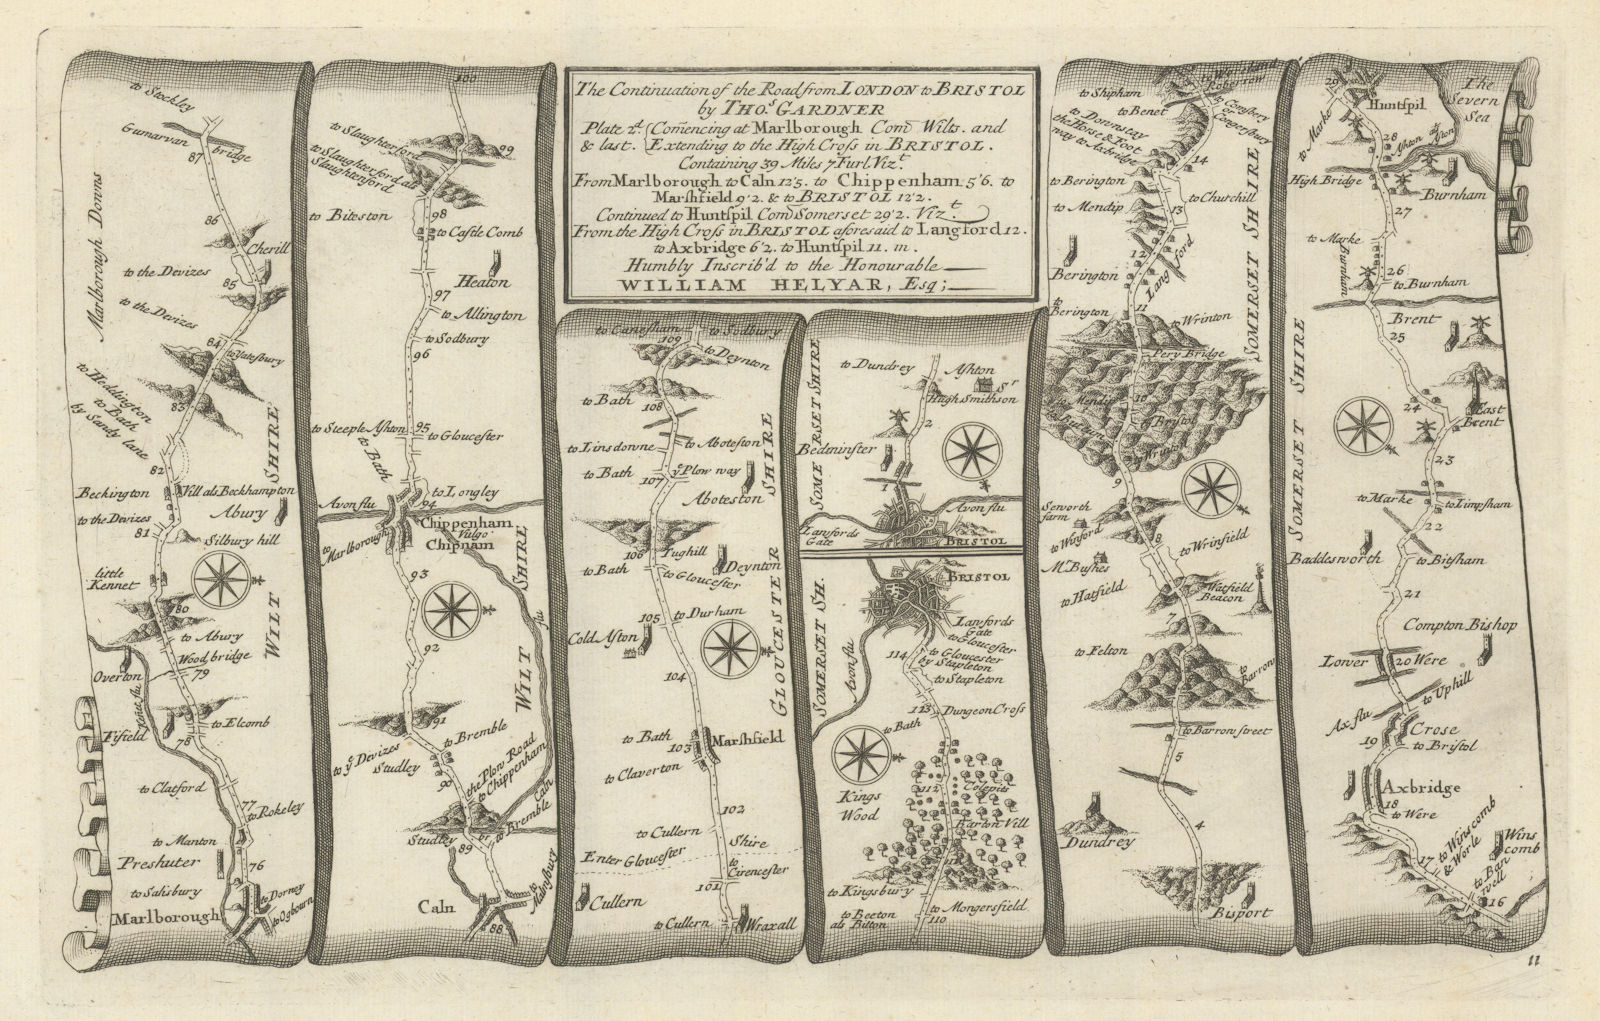 The Continuation of the Road from LONDON to BRISTOL
by THO.s GARDNER
Plate 2d. {Com̄encing at Marlborough Com̄ Wilts. and
& last. {Extending to the High Cross in BRISTOL.
Containing 39 Miles 7 Furl. Vizt.
From Marlborough to Caln 12'5. to Chippenham 5'6. to
Marshfield 9'2. & to BRISTOL 12'2.
Continued to Huntspil Com̄ Somerset 29'2. Vizt.
From the High Cross in BRISTOL aforesaid to Langford 12.
to Axbridge 6'2. to Huntspil 11. m.
Humbly Inscrib'd to the Honourable
WILLIAM HELYAR, Esq;
to Stockley
Gumarvan bridge
87
Marlborough Downs
86
Cherill
to the Devizes
85
to the Devizes
84
to Yatesbury
to Heddington
to Bath
by Sandy lane
83
WILT SHIRE
82
Beckington
Vill als Beckhampton
to the Devizes
Abury
81
Silbury hill
little
Kennet
80
to Abury
Wood bridge
79
Overton
Kenet flu
to Elcomb
Fifield
78
to Clatford
77
to Rokeley
to Manton
Preshuter
76
to Salisbury
to Dorney
Marlborough
to Ogbourn
100
to Slaughterford
to Slaughterford als
Slaughtenford
99
to Biteston
98
to Castle Comb
Heaton
97
to Allington
to Sodbury
96
to Steeple Ashton
95
to Gloucester
to Bath
to Longley
Avon flu
94
Chippenham
Vulgo
Chipnam
to Marlborough
93
WILT SHIRE
flu
92
91
to Bremble
to ye Devizes
Studley
90
the Plow Road
to Chippenham
Caln
Studley
br
to Bremble
89
Caln
to Malmsbury
88
to Canesham
to Sodbury
109
to Deynton
to Bath
108
to Linsdowne
to Aboteston
to Bath
ye Plow way
107
Aboteston
106
Tughill
to Bath
Deynton
to Gloucester
105
to Durham
Cold Aston
GLOUCESTER SHIRE
104
to Bath
103
Marshfield
to Claverton
102
to Cullern
Shire
Enter Gloucester
to
Cirencester
101
Cullern
to Cullern
Wraxall
to Dundrey
Ashton
Sr
Hugh Smithson
2
SOMERSET SHIRE
Bedminster
1
Avon flu
Lansfords
Gate
BRISTOL
BRISTOL
SOMERSET SH.
Lansfords
Gate
to Gloucester
to Gloucester
by Stapleton
114
to Stapleton
Avon flu
113
Dungeon Cross
to Bath
Kings
Wood
112
Colepits
Barton Vill
111
to Kingsbury
to Mongersfield
to Beeton
als Bitton
110
to Shipham
to Benet
to Downstay
the Horse & Foot
way to Axbridge
14
to Berington
13
to Churchill
to Mendip
SOMERSET SHIRE
Berington
12
Langford
to
Berington
11
to Wrinton
Pery Bridge
to Mendip
10
to Bristol
9
Seworth
farm
to Winford
8
to Wrinfield
Mr. Bushes
to Hatfield
Watfield
Beacon
7
to Felton
to
Barrow
to Barrow street
5
4
Dundrey
Bisport
29
Huntspil
The
Severn
Sea
to Marke
28
High Bridge
Burnham
27
to Marke
Burnham
26
to Burnham
Brent
25
SOMERSET SHIRE
24
East
Brent
23
to Marke
to Limpsham
22
Baddesworth
to Bitsham
21
Compton Bishop
Lower
20
Were
to Uphill
Ax flu
Crose
19
to Bristol
Axbridge
18
to Were
17
to Winscomb
& Worle
Wins
comb
to Ban
well
16
11